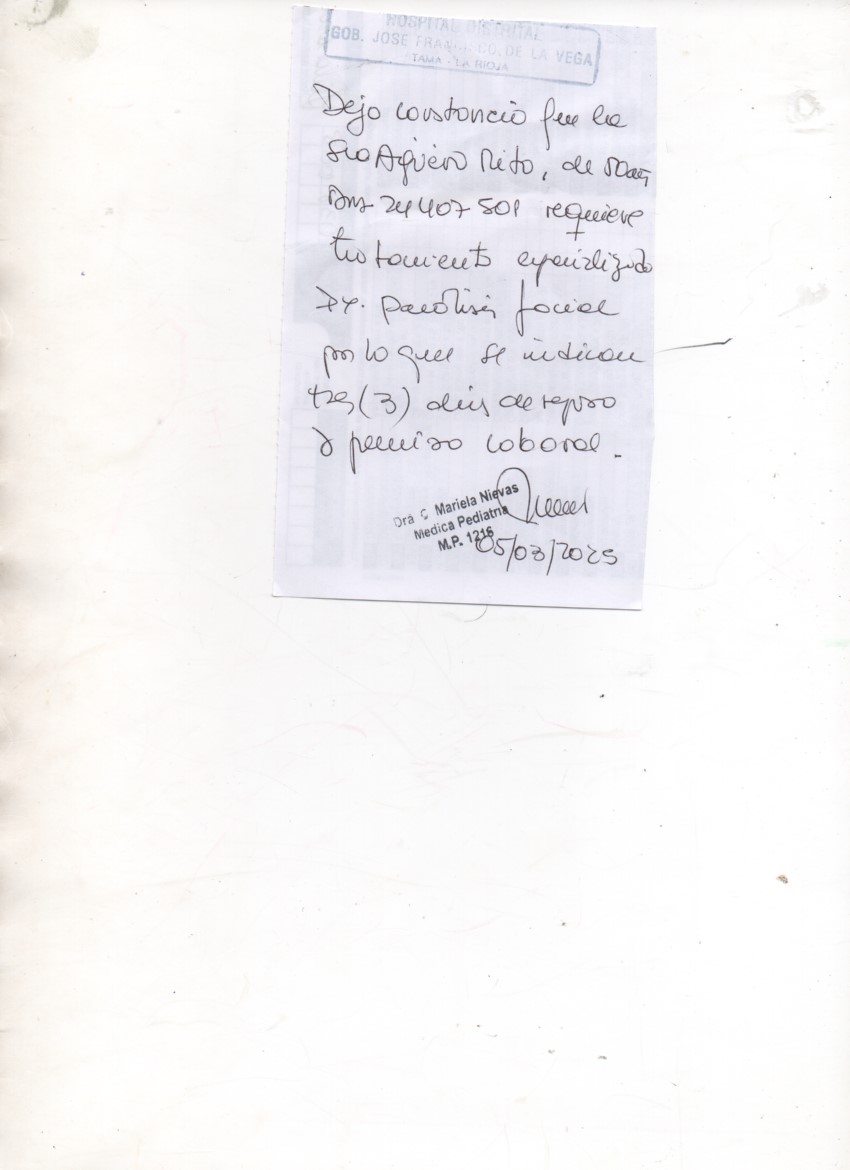 HOSPITAL DISTRITAL
GOB. JOSE FRANCISCO DE LA VEGA
TAMA - LA RIOJA
Dejo constancia que la
Sra Agüero Rita, de 50 años
DNI 24407501 requiere
tratamiento especializado
Dx. parálisis facial
por lo que se indican
tres (3) días de reposo
y permiso laboral.
Dra C Mariela Nievas
Medica Pediatra
M.P. 1216
05/03/2025